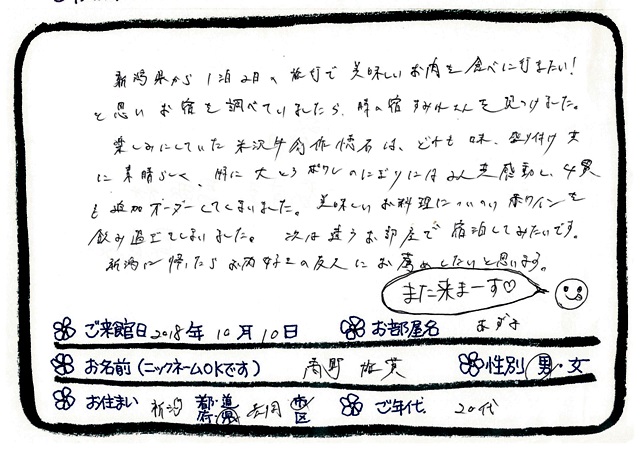 新潟県から1泊2日の旅行で美味しいお肉を食べに行きたい!
と思いお宿を調べていましたら、時の宿すみれさんを見つけました。
楽しみにしていた米沢牛創作懐石は、どれも味、盛り付け共
に素晴らしく、特に大とろ炙りのにぎりには2人共感動し、4貫
も追加オーダーしてしまいました。美味しいお料理についつい赤ワインを
飲み過ぎてしまいました。次は違うお部屋で宿泊してみたいです。
新潟に帰ったらお肉好きの友人にお薦めしたいと思います。
また来まーす♡
ご来館日 2018年 10月 10日 お部屋名 あずさ
お名前(ニックネームOKです) 性別 男・女
お住まい 新潟 都道府県 長岡 市区 ご年代. 20代